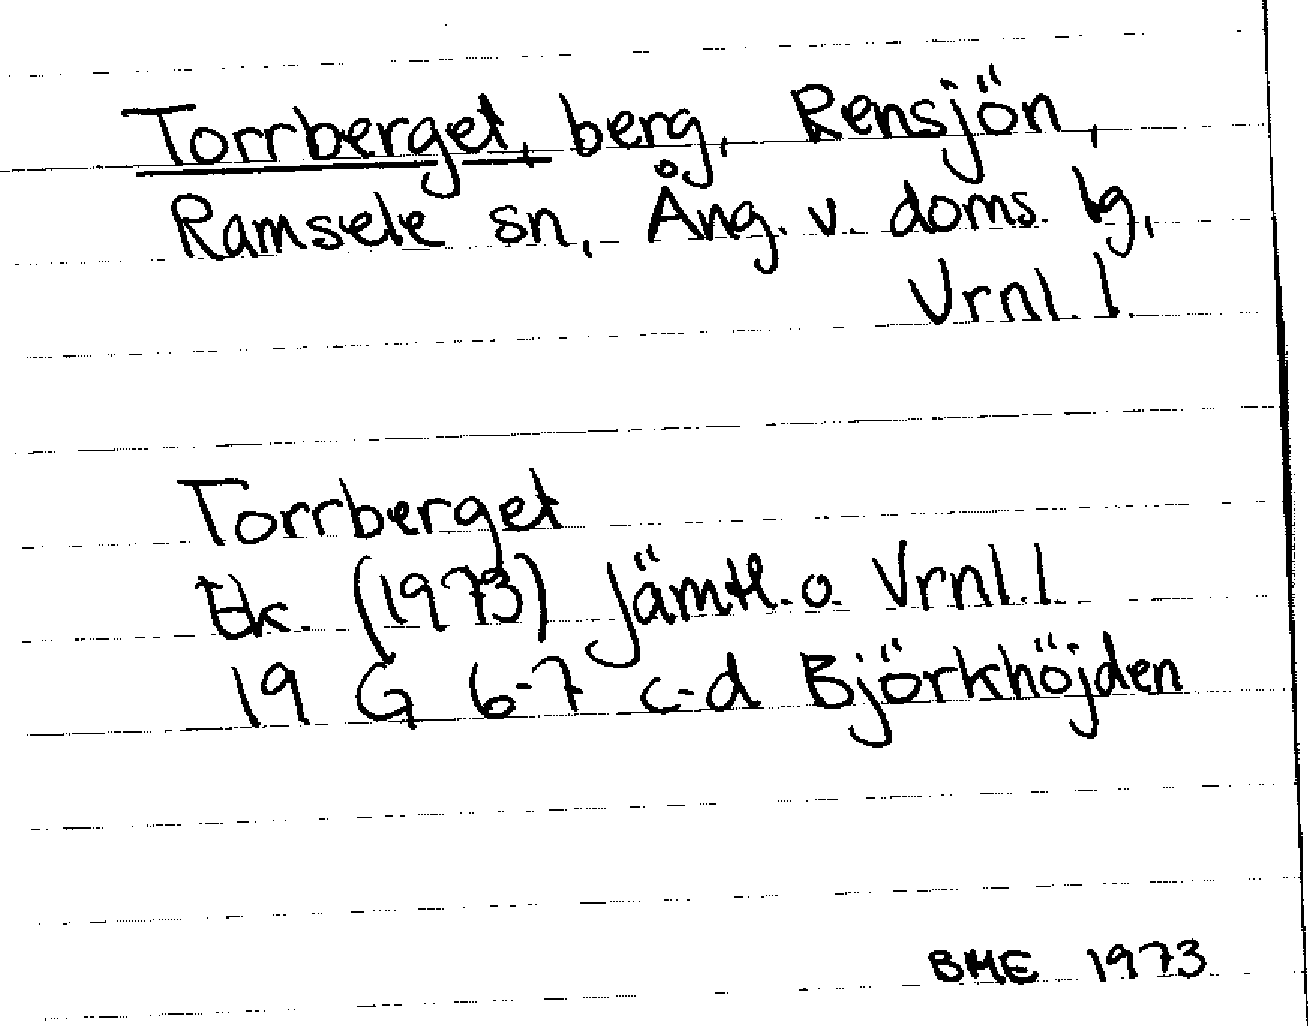 Torrberget, berg, Rensjön,
Ramsele sn, Ång. v. doms. lg,
Vrnl. l.
Torrberget
Ek. (1973) Jämtl. o. Vrnl. l
19 G 6-7 c-d Björkhöjden
BME 1973